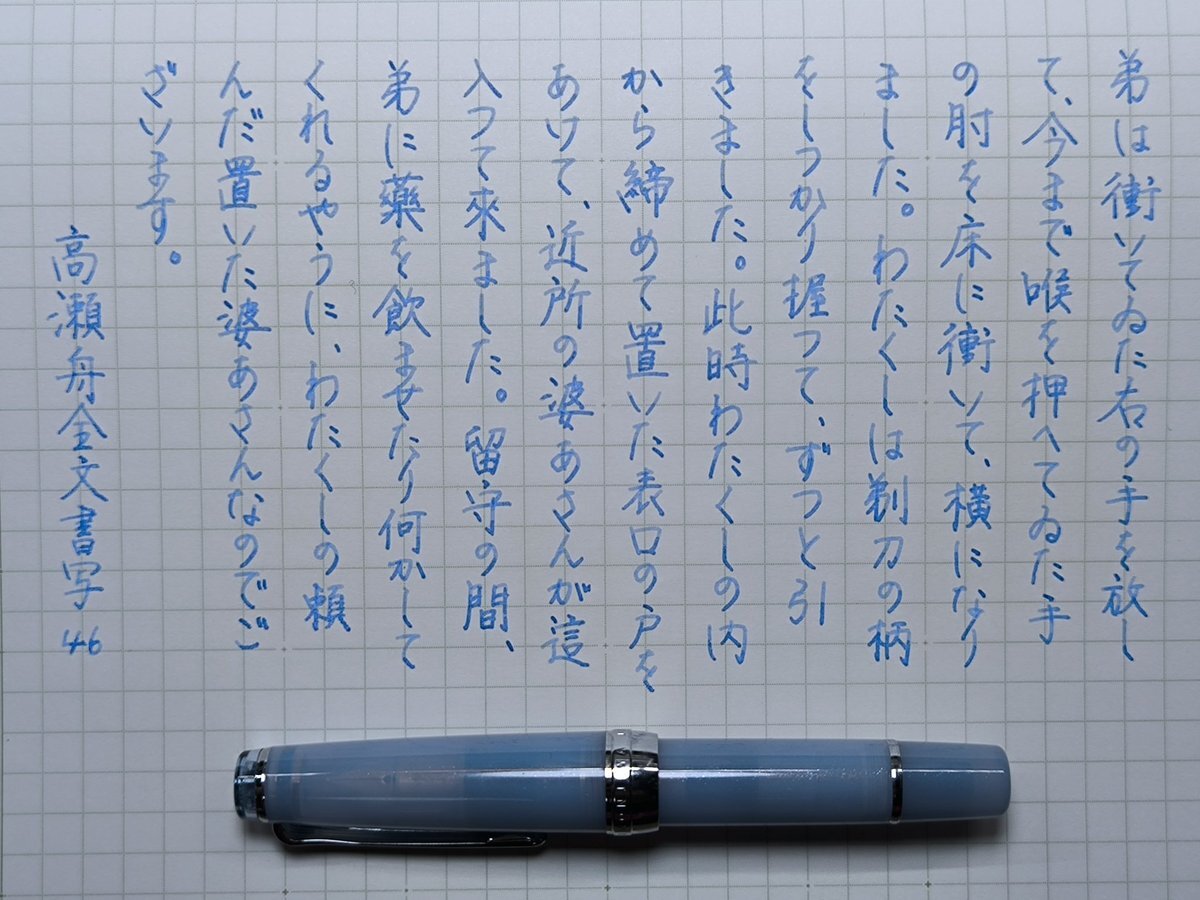 弟は衝いてゐた右の手を放し
て、今まで喉を押へてゐた手
の肘を床に衝いて、横になり
ました。わたくしは剃刀の柄
をしつかり握つて、ずつと引
きました。此時わたくしの内
から締めて置いた表口の戸を
あけて、近所の婆あさんが這
入つて來ました。留守の間、
弟に藥を飲ませたり何かして
くれるやうに、わたくしの頼
んだ置いた婆あさんなのでご
ざいます。
高瀬舟全文書写 46